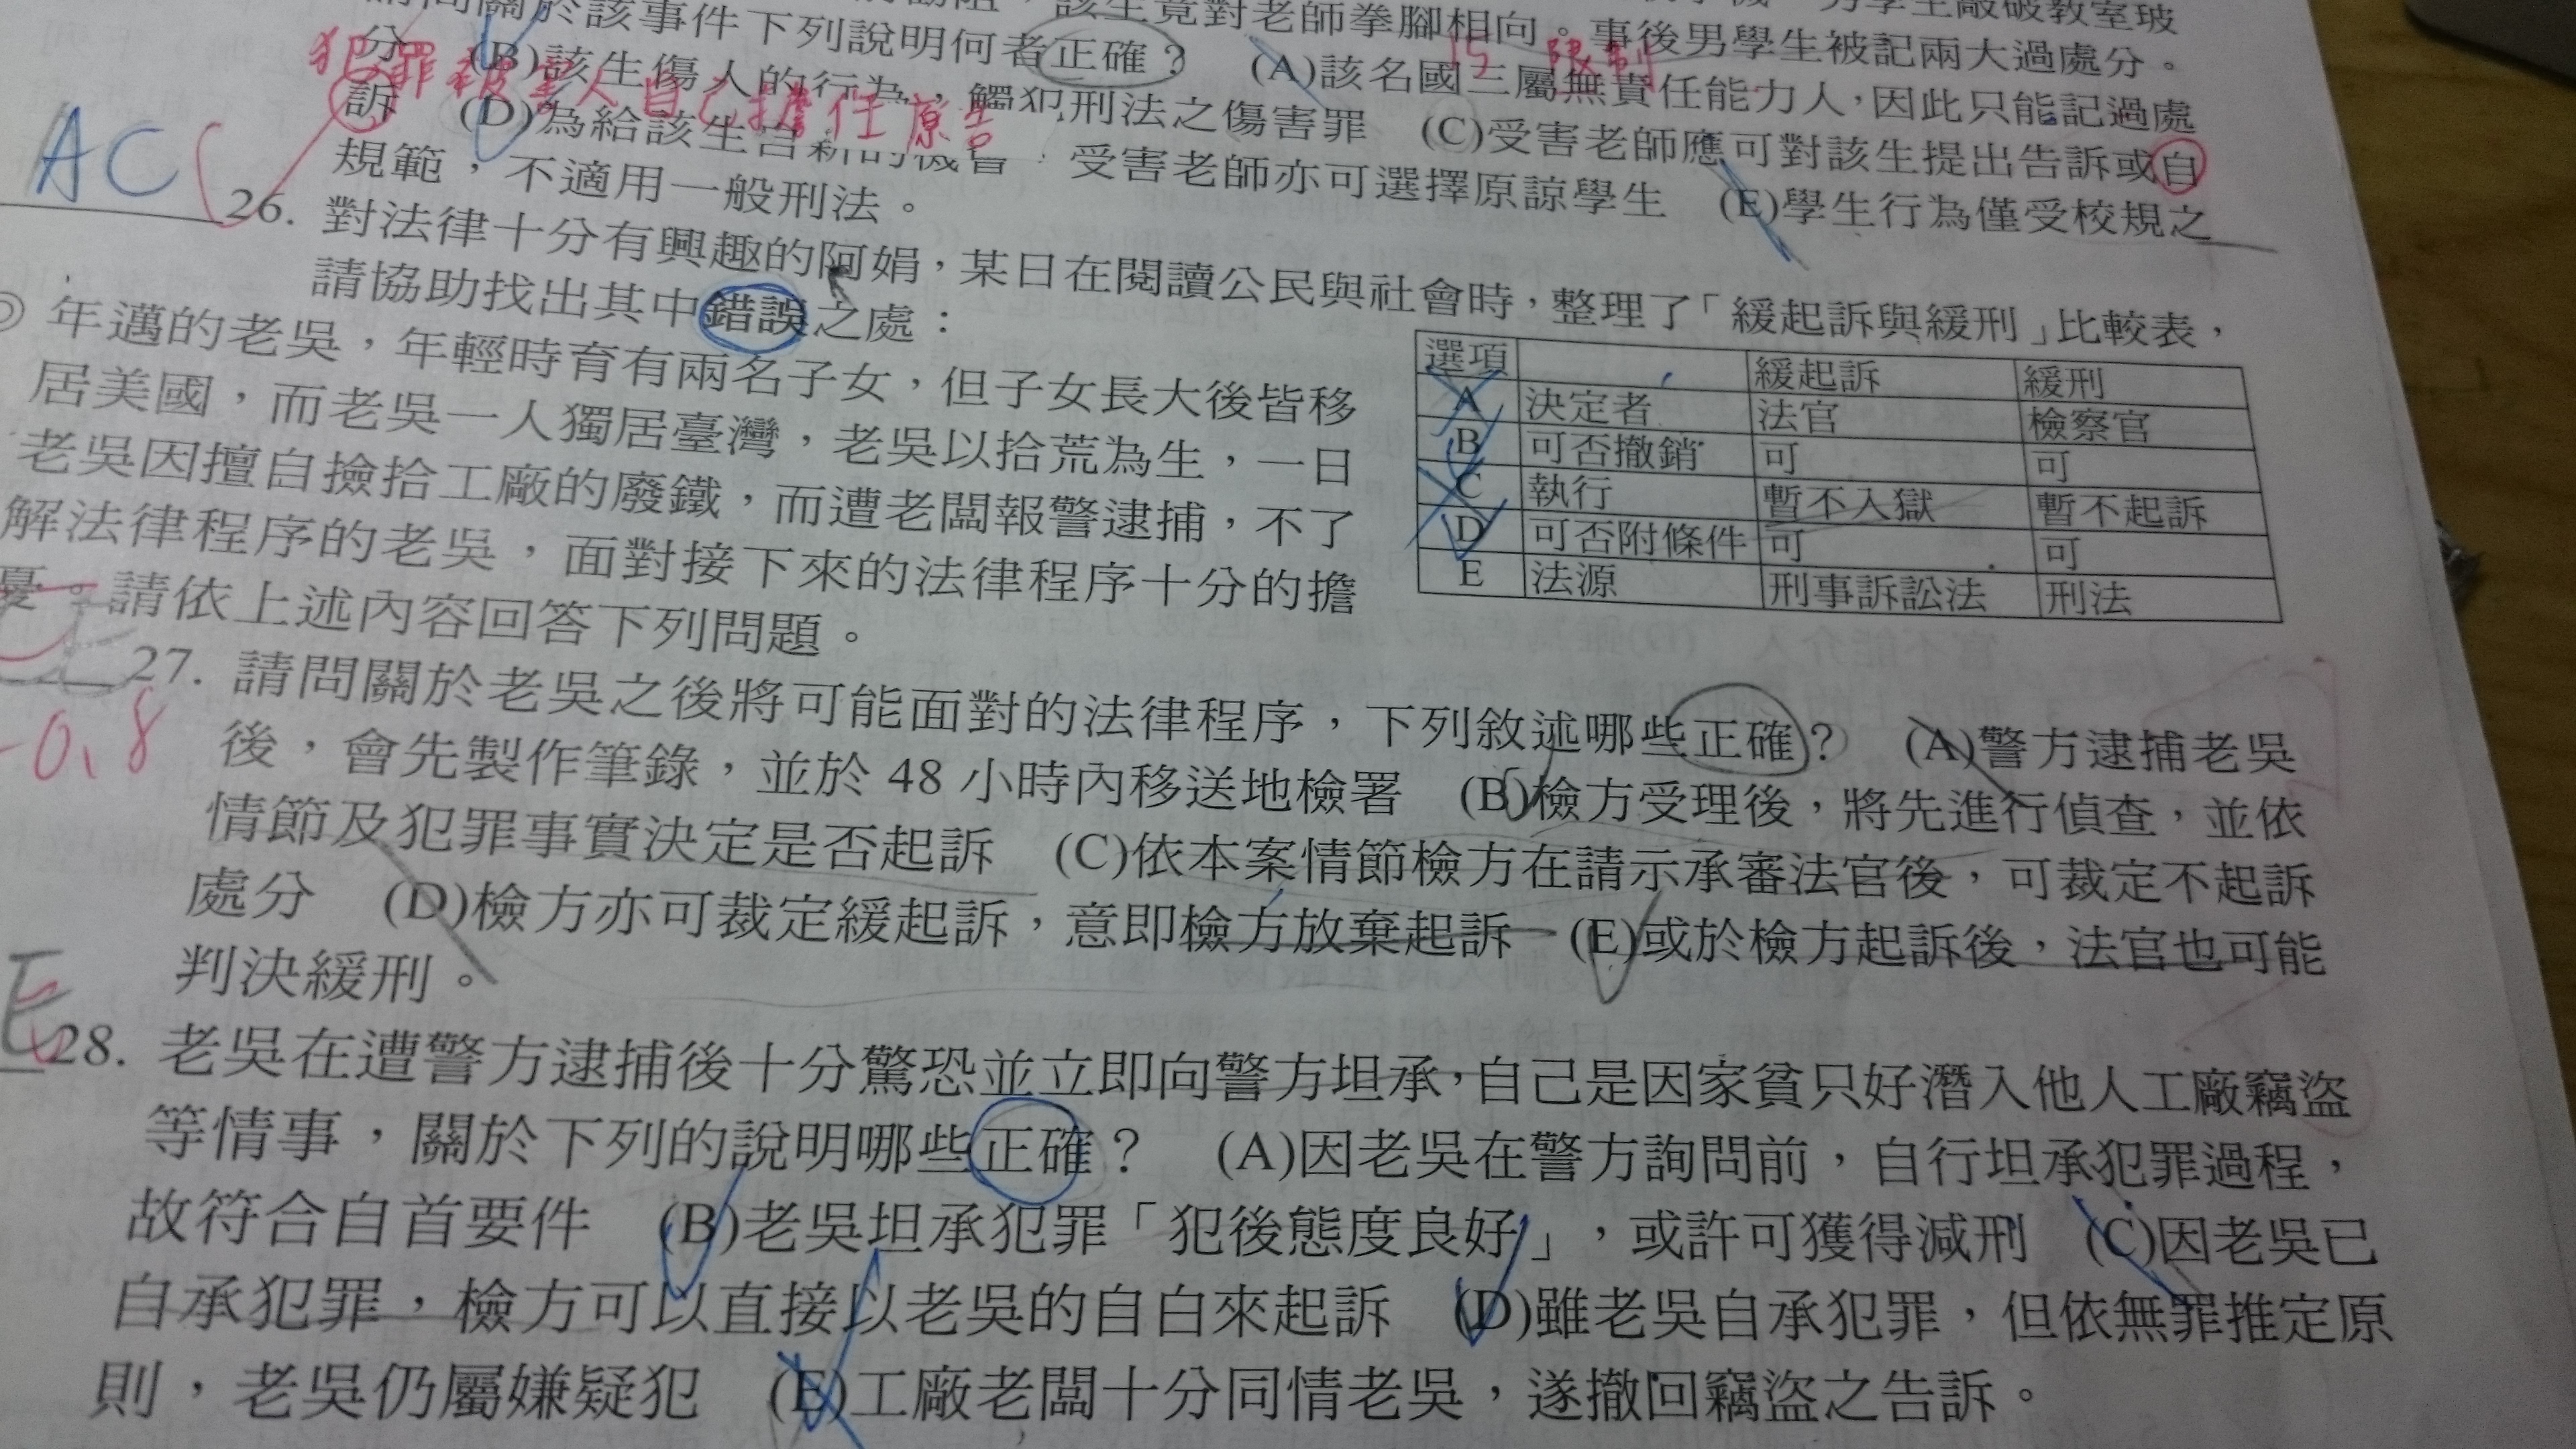 該生竟對老師拳腳相向。事後男學生被記兩大過處分。
關於該事件下列說明何者正確？ (A)該名國三屬無責任能力人，因此只能記過處
15 限制
分 (B)該生傷人的行為，觸犯刑法之傷害罪 (C)受害老師應可對該生提出告訴或自
犯罪被害人自己擔任原告
訴 (D)為給該生自新的機會，受害老師亦可選擇原諒學生 (E)學生行為僅受校規之
規範，不適用一般刑法。
AC
26. 對法律十分有興趣的阿娟，某日在閱讀公民與社會時，整理了「緩起訴與緩刑」比較表，
請協助找出其中錯誤之處：
選項 緩起訴 緩刑
A 決定者 法官 檢察官
B 可否撤銷 可 可
C 執行 暫不入獄 暫不起訴
D 可否附條件 可 可
E 法源 刑事訴訟法 刑法
◎ 年邁的老吳，年輕時育有兩名子女，但子女長大後皆移
居美國，而老吳一人獨居臺灣，老吳以拾荒為生，一日
老吳因擅自撿拾工廠的廢鐵，而遭老闆報警逮捕，不了
解法律程序的老吳，面對接下來的法律程序十分的擔
憂。請依上述內容回答下列問題。
27. 請問關於老吳之後將可能面對的法律程序，下列敘述哪些正確？ (A)警方逮捕老吳
-0.8
後，會先製作筆錄，並於 48 小時內移送地檢署 (B)檢方受理後，將先進行偵查，並依
情節及犯罪事實決定是否起訴 (C)依本案情節檢方在請示承審法官後，可裁定不起訴
處分 (D)檢方亦可裁定緩起訴，意即檢方放棄起訴 (E)或於檢方起訴後，法官也可能
判決緩刑。
E
28. 老吳在遭警方逮捕後十分驚恐並立即向警方坦承，自己是因家貧只好潛入他人工廠竊盜
等情事，關於下列的說明哪些正確？ (A)因老吳在警方詢問前，自行坦承犯罪過程，
故符合自首要件 (B)老吳坦承犯罪「犯後態度良好」，或許可獲得減刑 (C)因老吳已
自承犯罪，檢方可以直接以老吳的自白來起訴 (D)雖老吳自承犯罪，但依無罪推定原
則，老吳仍屬嫌疑犯 (E)工廠老闆十分同情老吳，遂撤回竊盜之告訴。